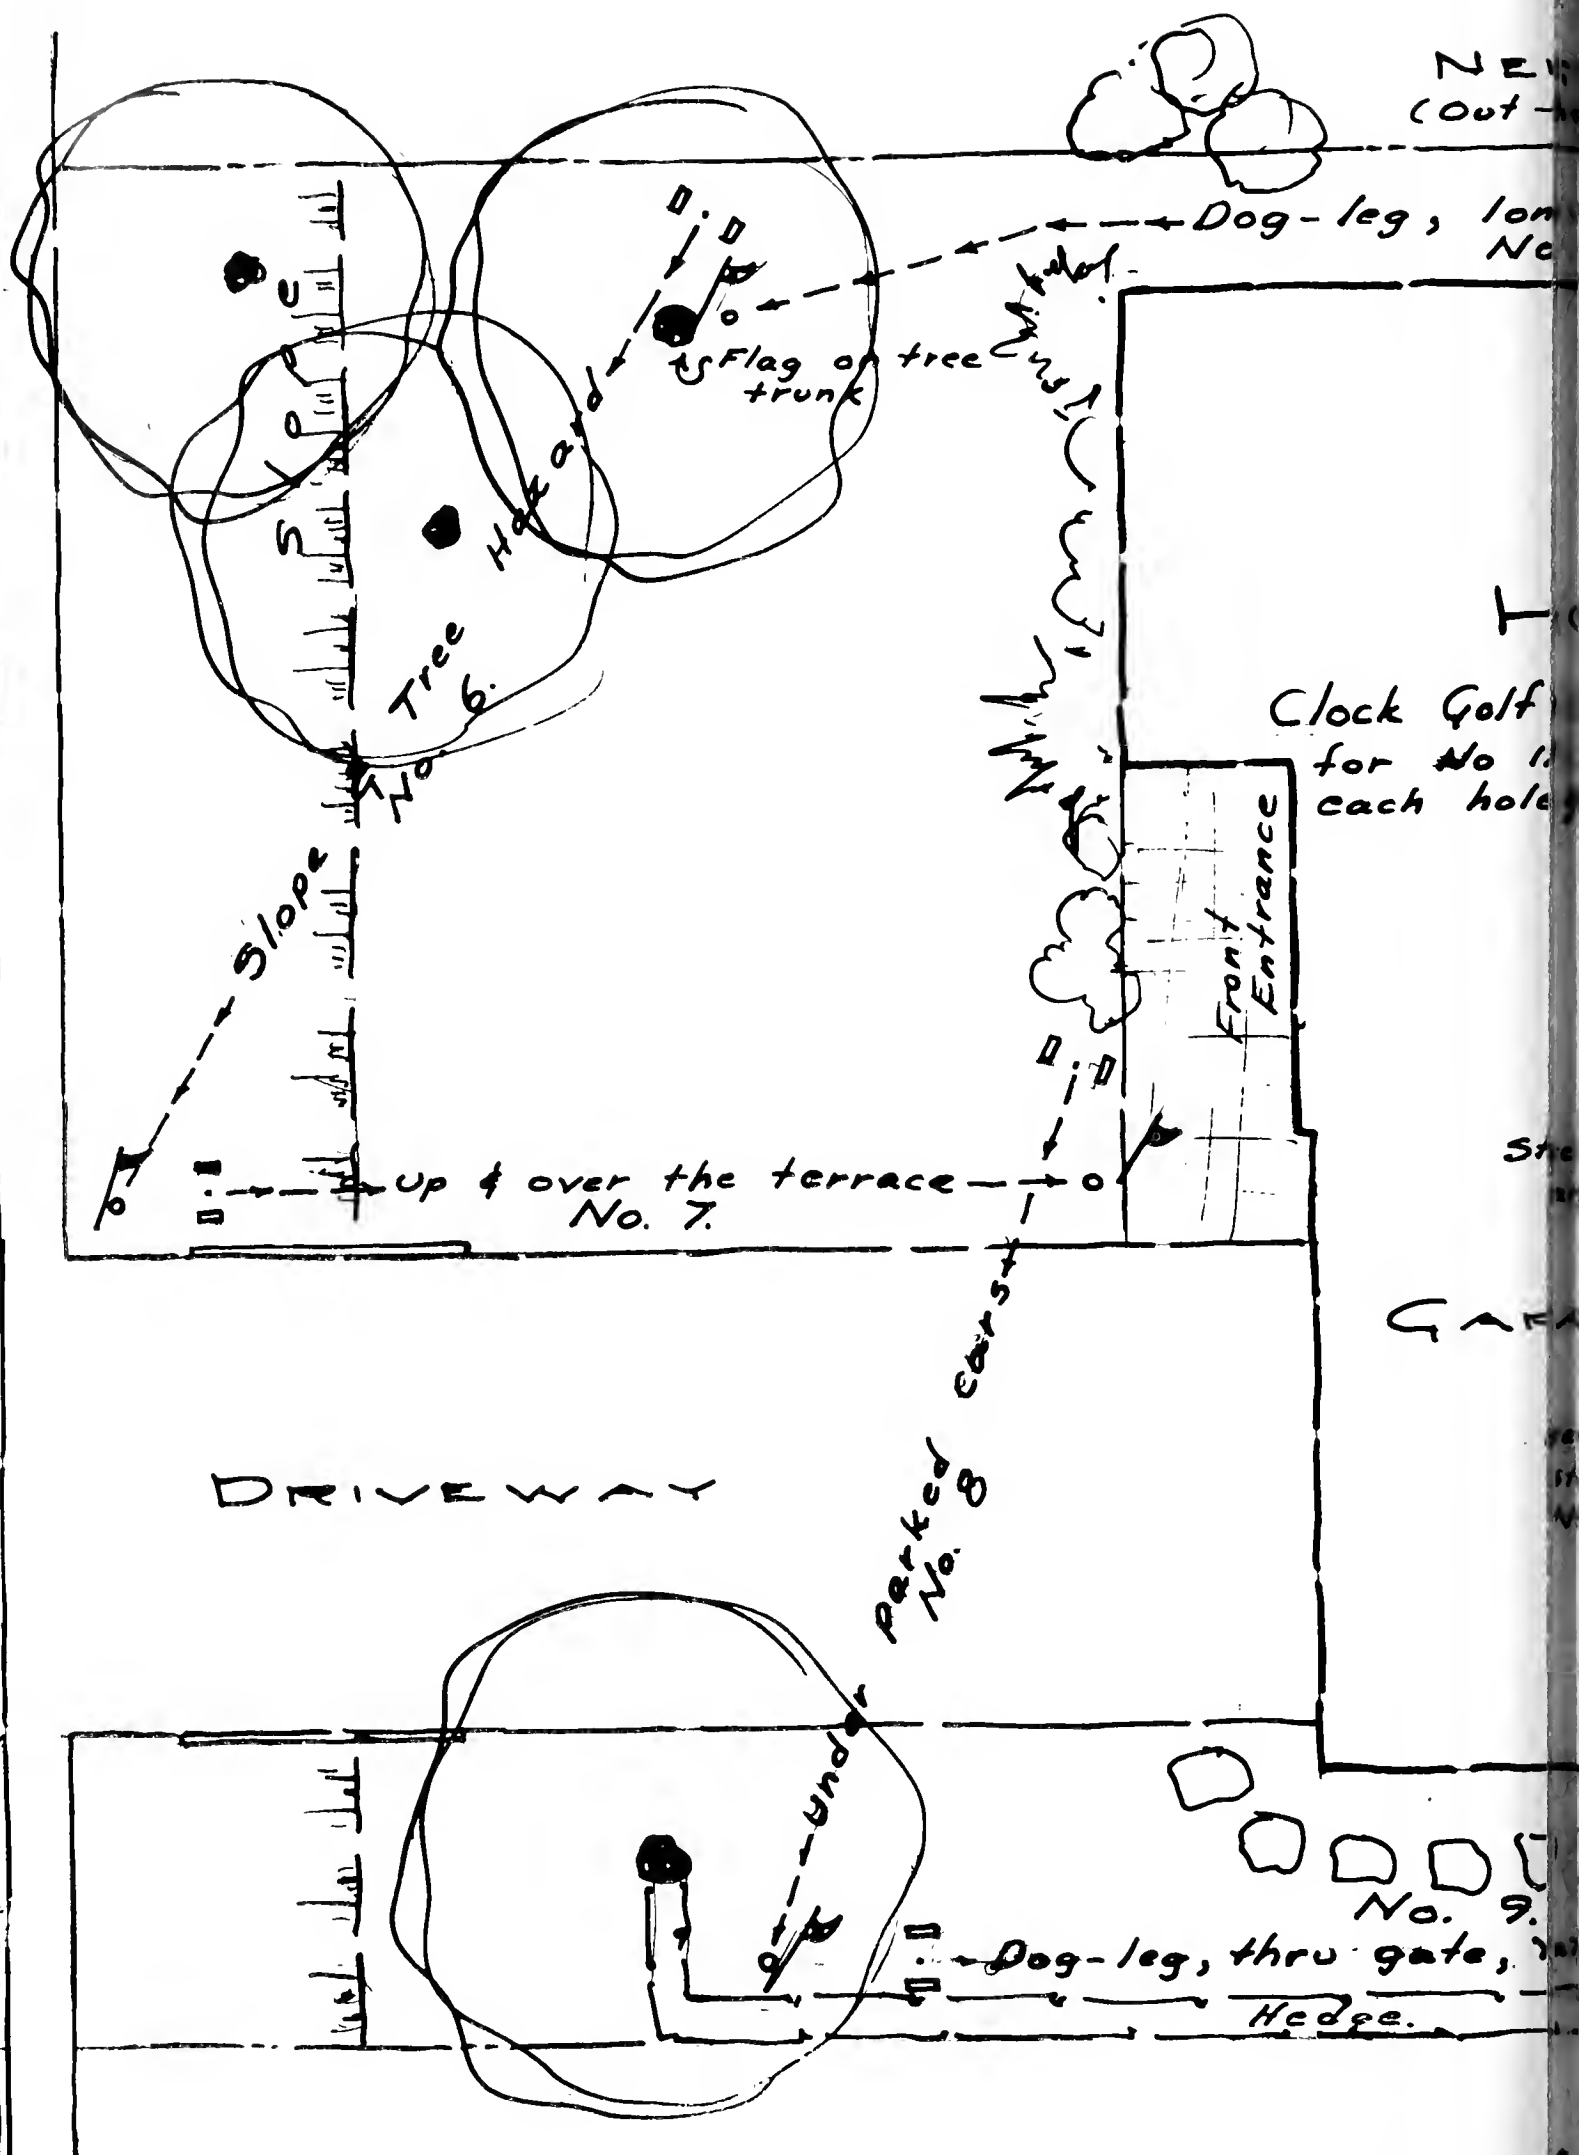 (Out
Dog-leg,
Flag on tree
trunk
Hazard
Tree
No. 6.
Slope
Slope
Clock Golf
for No 1.
each hole
Front
Entrance
Up & over the terrace
No. 7.
DRIVEWAY
Under parked cars
No. 8
No. 9.
Dog-leg, thru gate,
Hedge.